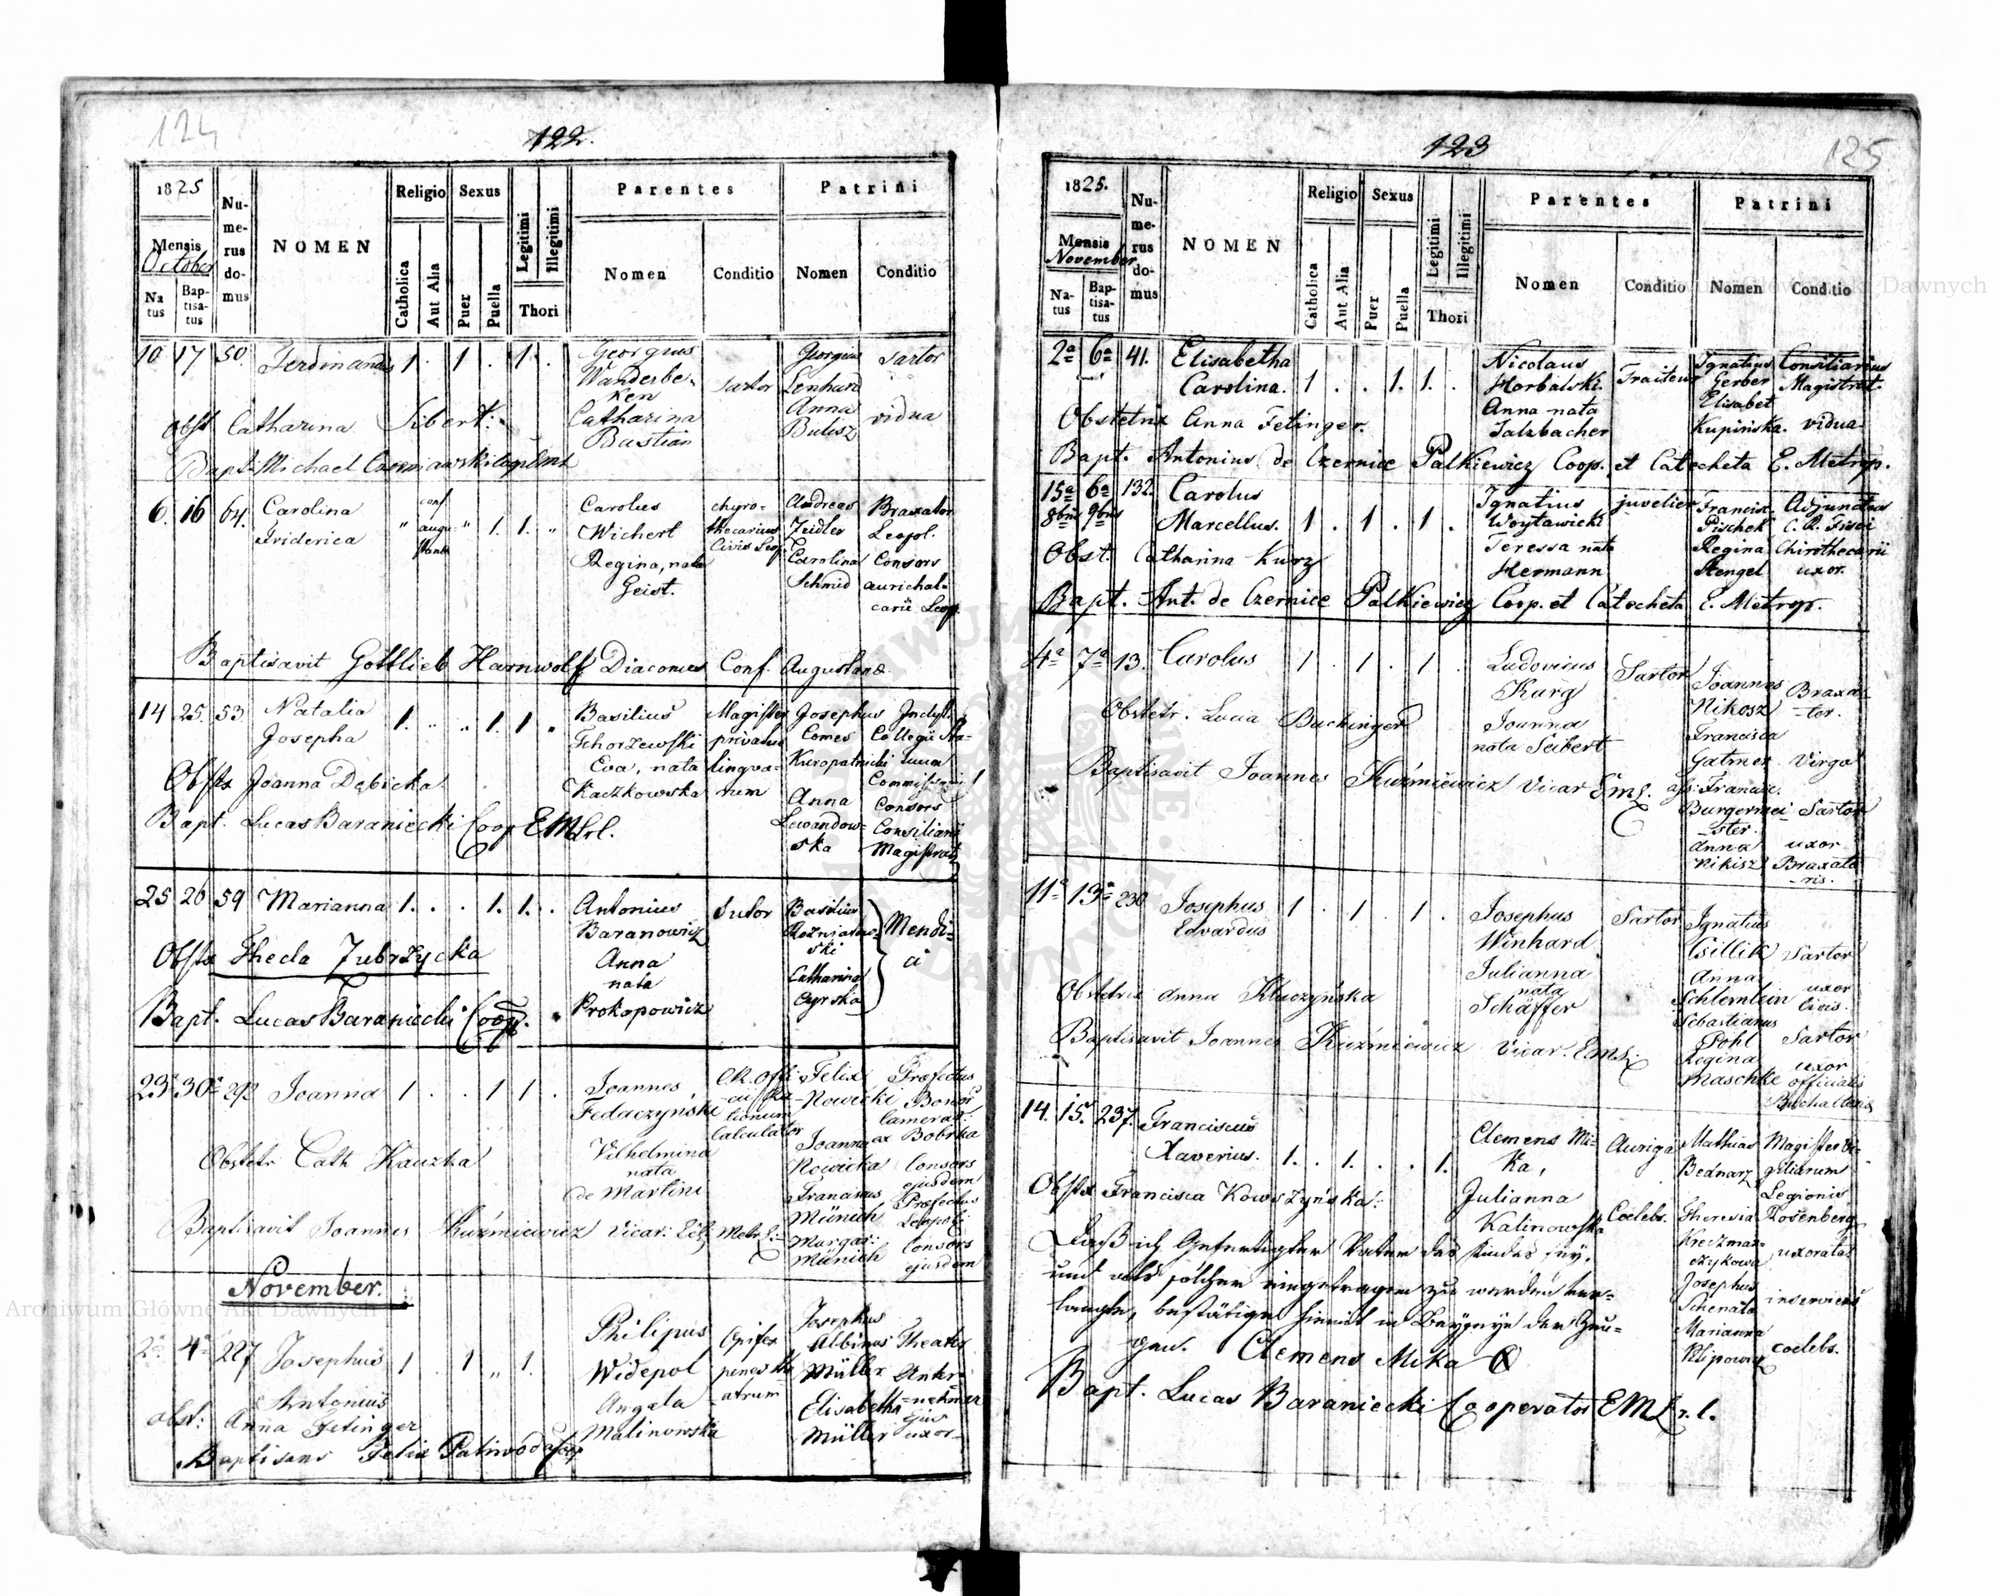 124
122.
1825
Mensis
October
Natus
Baptisatus
Numerus domus
NOMEN
Religio
Catholica
Aut Alia
Sexus
Puer
Puella
Legitimi
Illegitimi
Thori
Parentes
Nomen
Conditio
Patrini
Nomen
Conditio
10 17 50. Ferdinandus 1 . 1 . 1 .
Georgius
Wanderbe-
ken
Catharina
Bastian
Sartor
Georgius
Lenhard
Anna
Bulisz
Sartor
vidua
Obst Catharina Sibert:
Bapt. Michael
6. 16 64. Carolina
Friderica
conf
" " 1. 1. "
Carolus
Wichert
Regina, nata
Geist.
chyro-
thecarius
Civis Leop.
Andreas
Zeidler
Carolina
Schmid
Braxator
Leopol.
Consors
aurichal-
carii Leop.
Baptisavit Gottlieb Harnwolf Diaconus Conf. Augustanæ.
14 25. 53. Natalia
Josepha
1. . " 1. 1 .
Basilius
Tchorzewski
Eva, nata
Kaczkowska
Magister
privatus
lingva-
rum
Josephus
Comes
Kuropatnicki
Anna
Lewandow-
ska
Consors
Consiliarii
Magistrat.
Obstx Joanna Dąbicka
Bapt. Lucas Baraniecki Coop EMLrl.
25 26 59 Marianna 1. . . 1. 1. .
Antonius
Baranowicz
Anna
nata
Prokopowicz
Sutor
Basilius
ski
Catharina
Cyrska
Mendi-
ci
Obstx Thecla Zubrzycka
Bapt. Lucas Baraniecki Coop.
23a 30a 292 Joanna 1 . . 1 1 .
Joannes
Fedaczyński
Vilhelmina
nata
de Martini
Calculator
Felix
Nowicki
Joanna
Nowicka
Franciscus
Münich
Margar:
Münich
Præfectus
Bonor
Cameral:
ex Bobrka
Consors
ejusdem
Præfectus
Leopol:
Consors
ejusdem
Obstetr. Cath Kauzka
Baptisavit Joannes Kuźmiewicz Vicar: Ecl. Metr.
November.
2a 4a 227 Josephus 1 . 1 " 1.
Antonius
Philipus
Widepol
Angela
Malinowska
Opifex
penes the
atrum
Josephus
Albinus
Müller
Elisabetha
Müller
Theater
Unter-
nehmer
ejus
uxor-
obst: Anna Fetinger
Baptisans Felix Paliwoda Coop
125
123
1825.
Mensis
November
Natus
Baptisatus
Numerus domus
NOMEN
Religio
Catholica
Aut Alia
Sexus
Puer
Puella
Legitimi
Illegitimi
Thori
Parentes
Nomen
Conditio
Patrini
Nomen
Conditio
2a 6a 41. Elisabetha
Carolina. 1 . . 1. 1. .
Nicolaus
Horbalski.
Anna nata
Salzbacher
Traiteur
Ignatius
Gerber
Elisabet
Kupińska.
Consiliarius
Magistrat.
vidua
Obstetrix Anna Fetinger.
Bapt. Antonius de Czernice Palkiewicz Coop. et Catecheta E. Metrop.
15a 6a 132. Carolus
8bris 9bris Marcellus. 1 . 1 . 1 .
Ignatius
Woytawicki
Teressa nata
Hermann
juvelier
Francisc.
Pischek
Regina
Stengel
Adjunctus
C. R. Fisci
Chirothecarii
uxor.
Obst. Catharina Kurz
Bapt. Ant. de Czernice Palkiewicz Coop. et Catecheta E. Metrop.
4a 7a 13. Carolus 1 . 1 . 1 .
Ludovicus
Kurg
Joanna
nata Seibert
Sartor
Joannes
Nikosz
Francisca
Gatmer
ass: Francisc.
Burgermei-
ster.
Anna
Nikisz
Braxa-
tor.
Virgo
Sartor
uxor
Braxato-
ris.
Obstetr. Lucia Buchinger
Baptisavit Joannes Kuźmiewicz Vicar EML.
11a 13a 230 Josephus
Edvardus
1 . 1 . 1 .
Josephus
Winhard
Julianna
nata
Schäffer
Sartor
Ignatius
Csillik
Anna
Schlemlein
Sebastianus
Pohl
Regina
Maschke
Sartor
uxor
civis.
Sartor
uxor
officialis
Buchalteriæ
Obstetrix Anna Kluczyńska
Baptisavit Joannes Kuźmiewicz Vicar. EML.
14. 15. 237. Franciscus
Xaverius. 1. . 1. . . 1.
Clemens Mi-
ka,
Julianna
Kalinowska
Auriga
Coelebs.
Mathias
Bednarz
Theresia
Kreczmar-
czykowa
Josephus
Schenata
Marianna
Klipowicz
Magister Vi-
giliarum
Legionis
Rosenberg
uxoratus
inserviens
coelebs.
Obstx Francisca Kowszyńska:
Daß ich Gefertigter Vater des Kindes sey,
und als solcher eingetragen zu werden ver-
langte, bestätige hiemit in Beyseyn der Zeu-
gen. Clemens Mika
Bapt. Lucas Baraniecki Cooperator EMLr.l.
Archiwum Główne Akt Dawnych